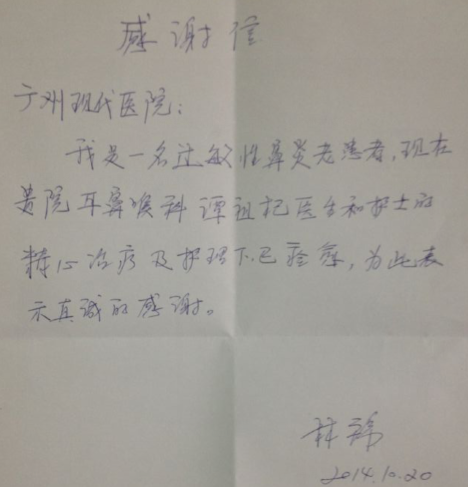 感谢信
广州现代医院:
我是一名过敏性鼻炎老患者,现在
贵院耳鼻喉科谭祖杞医生和护士的
精心治疗及护理下已痊愈,为此表
示真诚的感谢。
林
2014.10.20